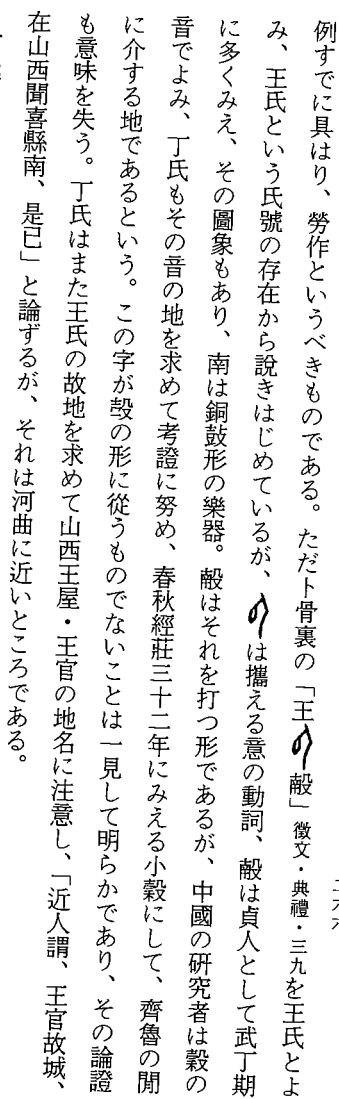 例すでに具はり、勞作というべきものである。ただ卜骨裏の「王㱿」徵文・典禮・三九を王氏とよ
み、王氏という氏號の存在から說きはじめているが、は攜える意の動詞、㱿は貞人として武丁期
に多くみえ、その圖象もあり、南は銅鼓形の樂器。㱿はそれを打つ形であるが、中國の硏究者は穀の
音でよみ、丁氏もその音の地を求めて考證に努め、春秋經莊三十二年にみえる小穀にして、齊魯の閒
に介する地であるという。この字が㱿の形に從うものでないことは一見して明らかであり、その論證
も意味を失う。丁氏はまた王氏の故地を求めて山西王屋・王官の地名に注意し、「近人謂、王官故城、
在山西聞喜縣南、是已」と論ずるが、それは河曲に近いところである。